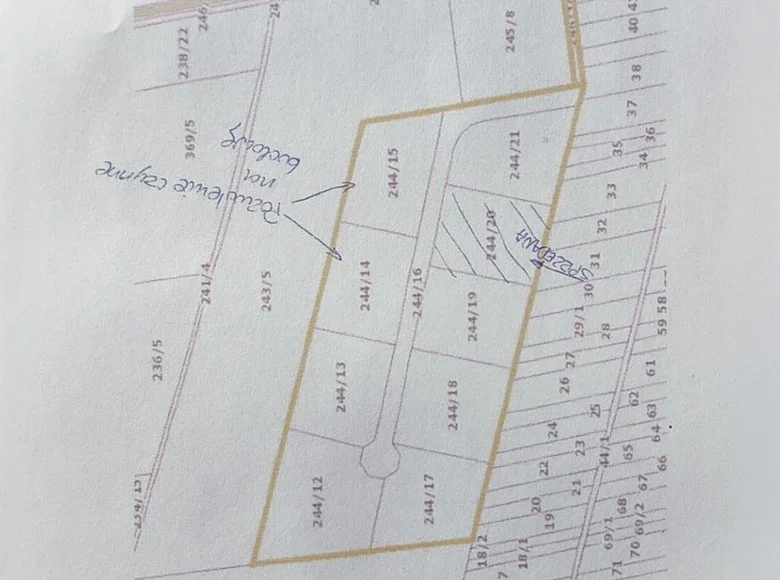 246
238/22
369/5
245/8
40
38
37
36
35
34
33
32
31
30
29/1
28
27
26
25
24
23
22
21
20
19
18/2
18/1
244/15
244/21
244/14
244/16
244/20
244/13
244/19
244/18
244/12
244/17
241/4
243/5
236/5
Pozwolenie czynne
na
budowę
SPRZEDANA
59 58
61
62
63
64
65
66
67
68
69/1
69/2
70
71
44/1